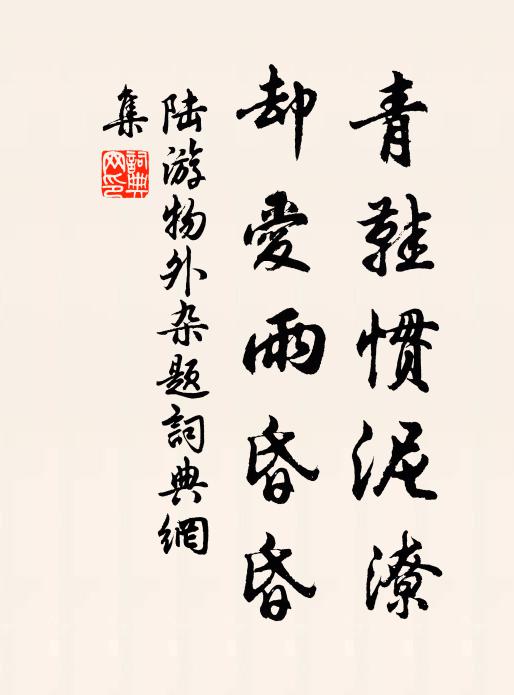 青鞋慣泥潦
却愛雨昏昏
陆游物外杂题詞典網
集
詞典网印